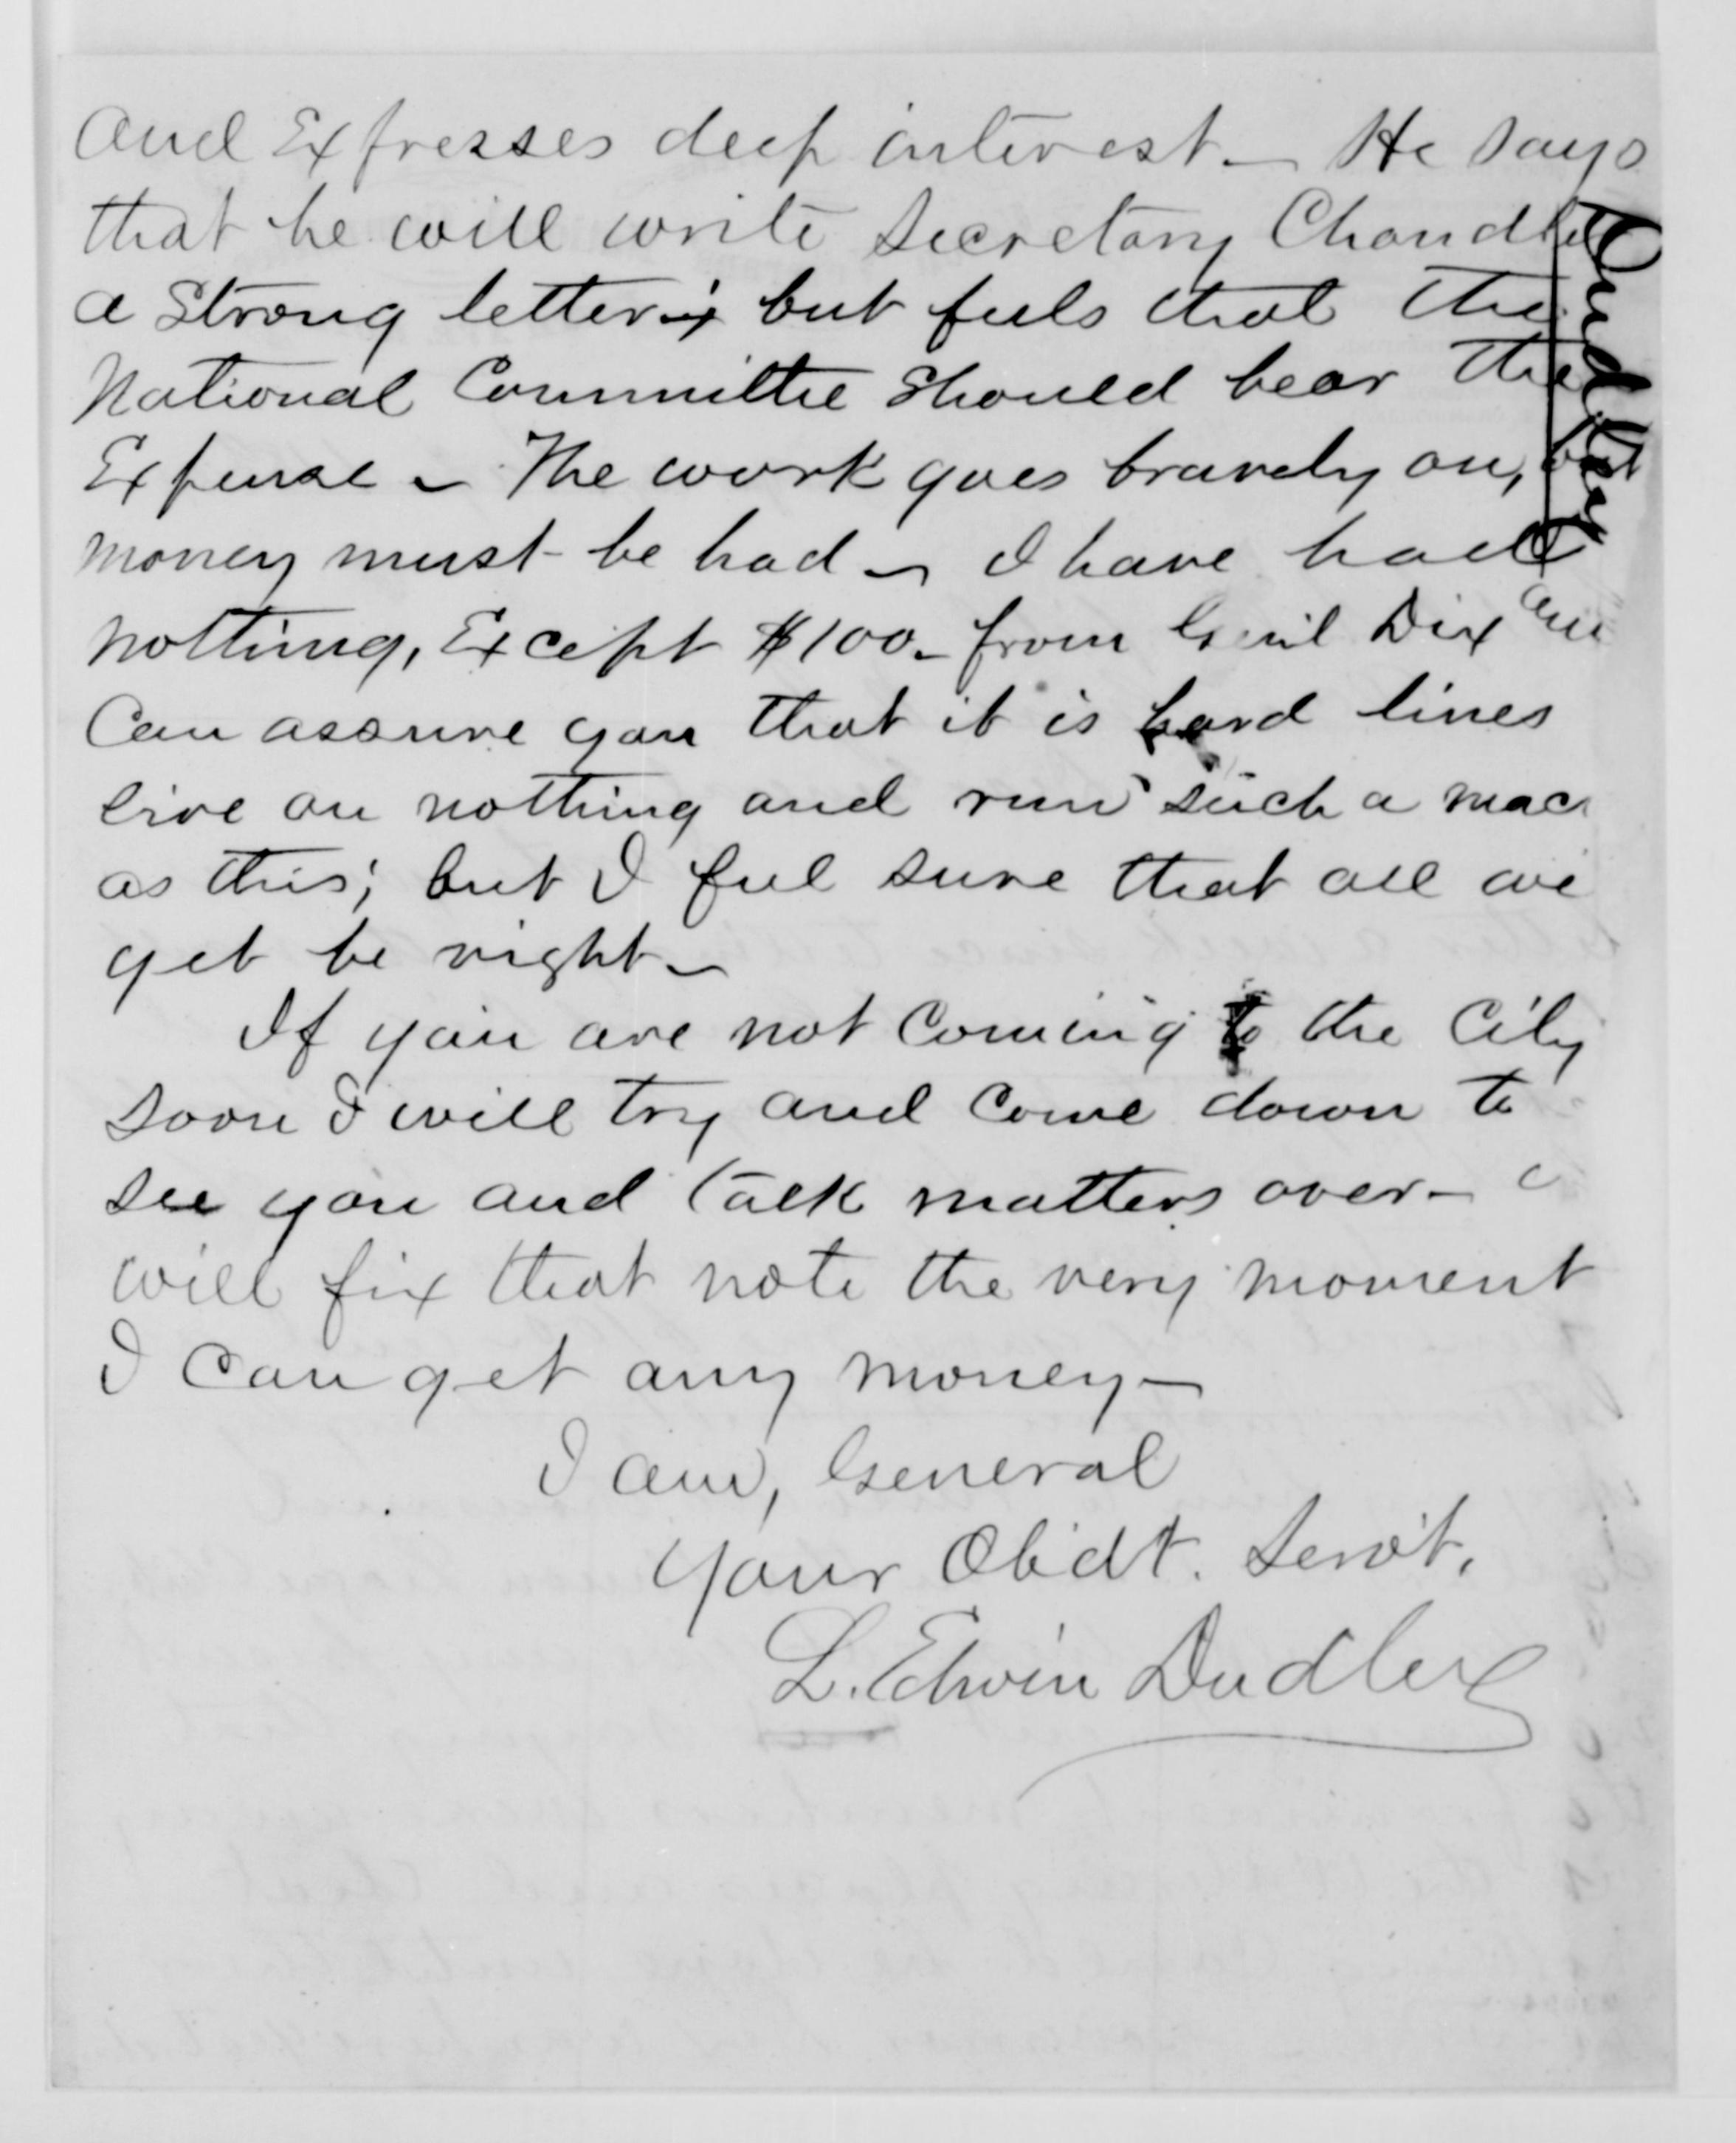 and Expresses deep interest — He says
that he will write Secretary Chandler
a strong letter; but feels that the
National Committee should bear the
Expense — The work goes bravely on, but
money must be had — I have had
nothing, Except $100— from Genl Dix and
Can assure you that it is hard lines
live on nothing and run such a mac
as this; but I feel sure that all wi
yet be right —
If you are not coming to the City
soon I will try and come down to
see you and talk matters over —
will fix that note the very moment
I can get any money —
I am, General
Your Obdt. Servt.
L. Edwin Dudley
Dudley